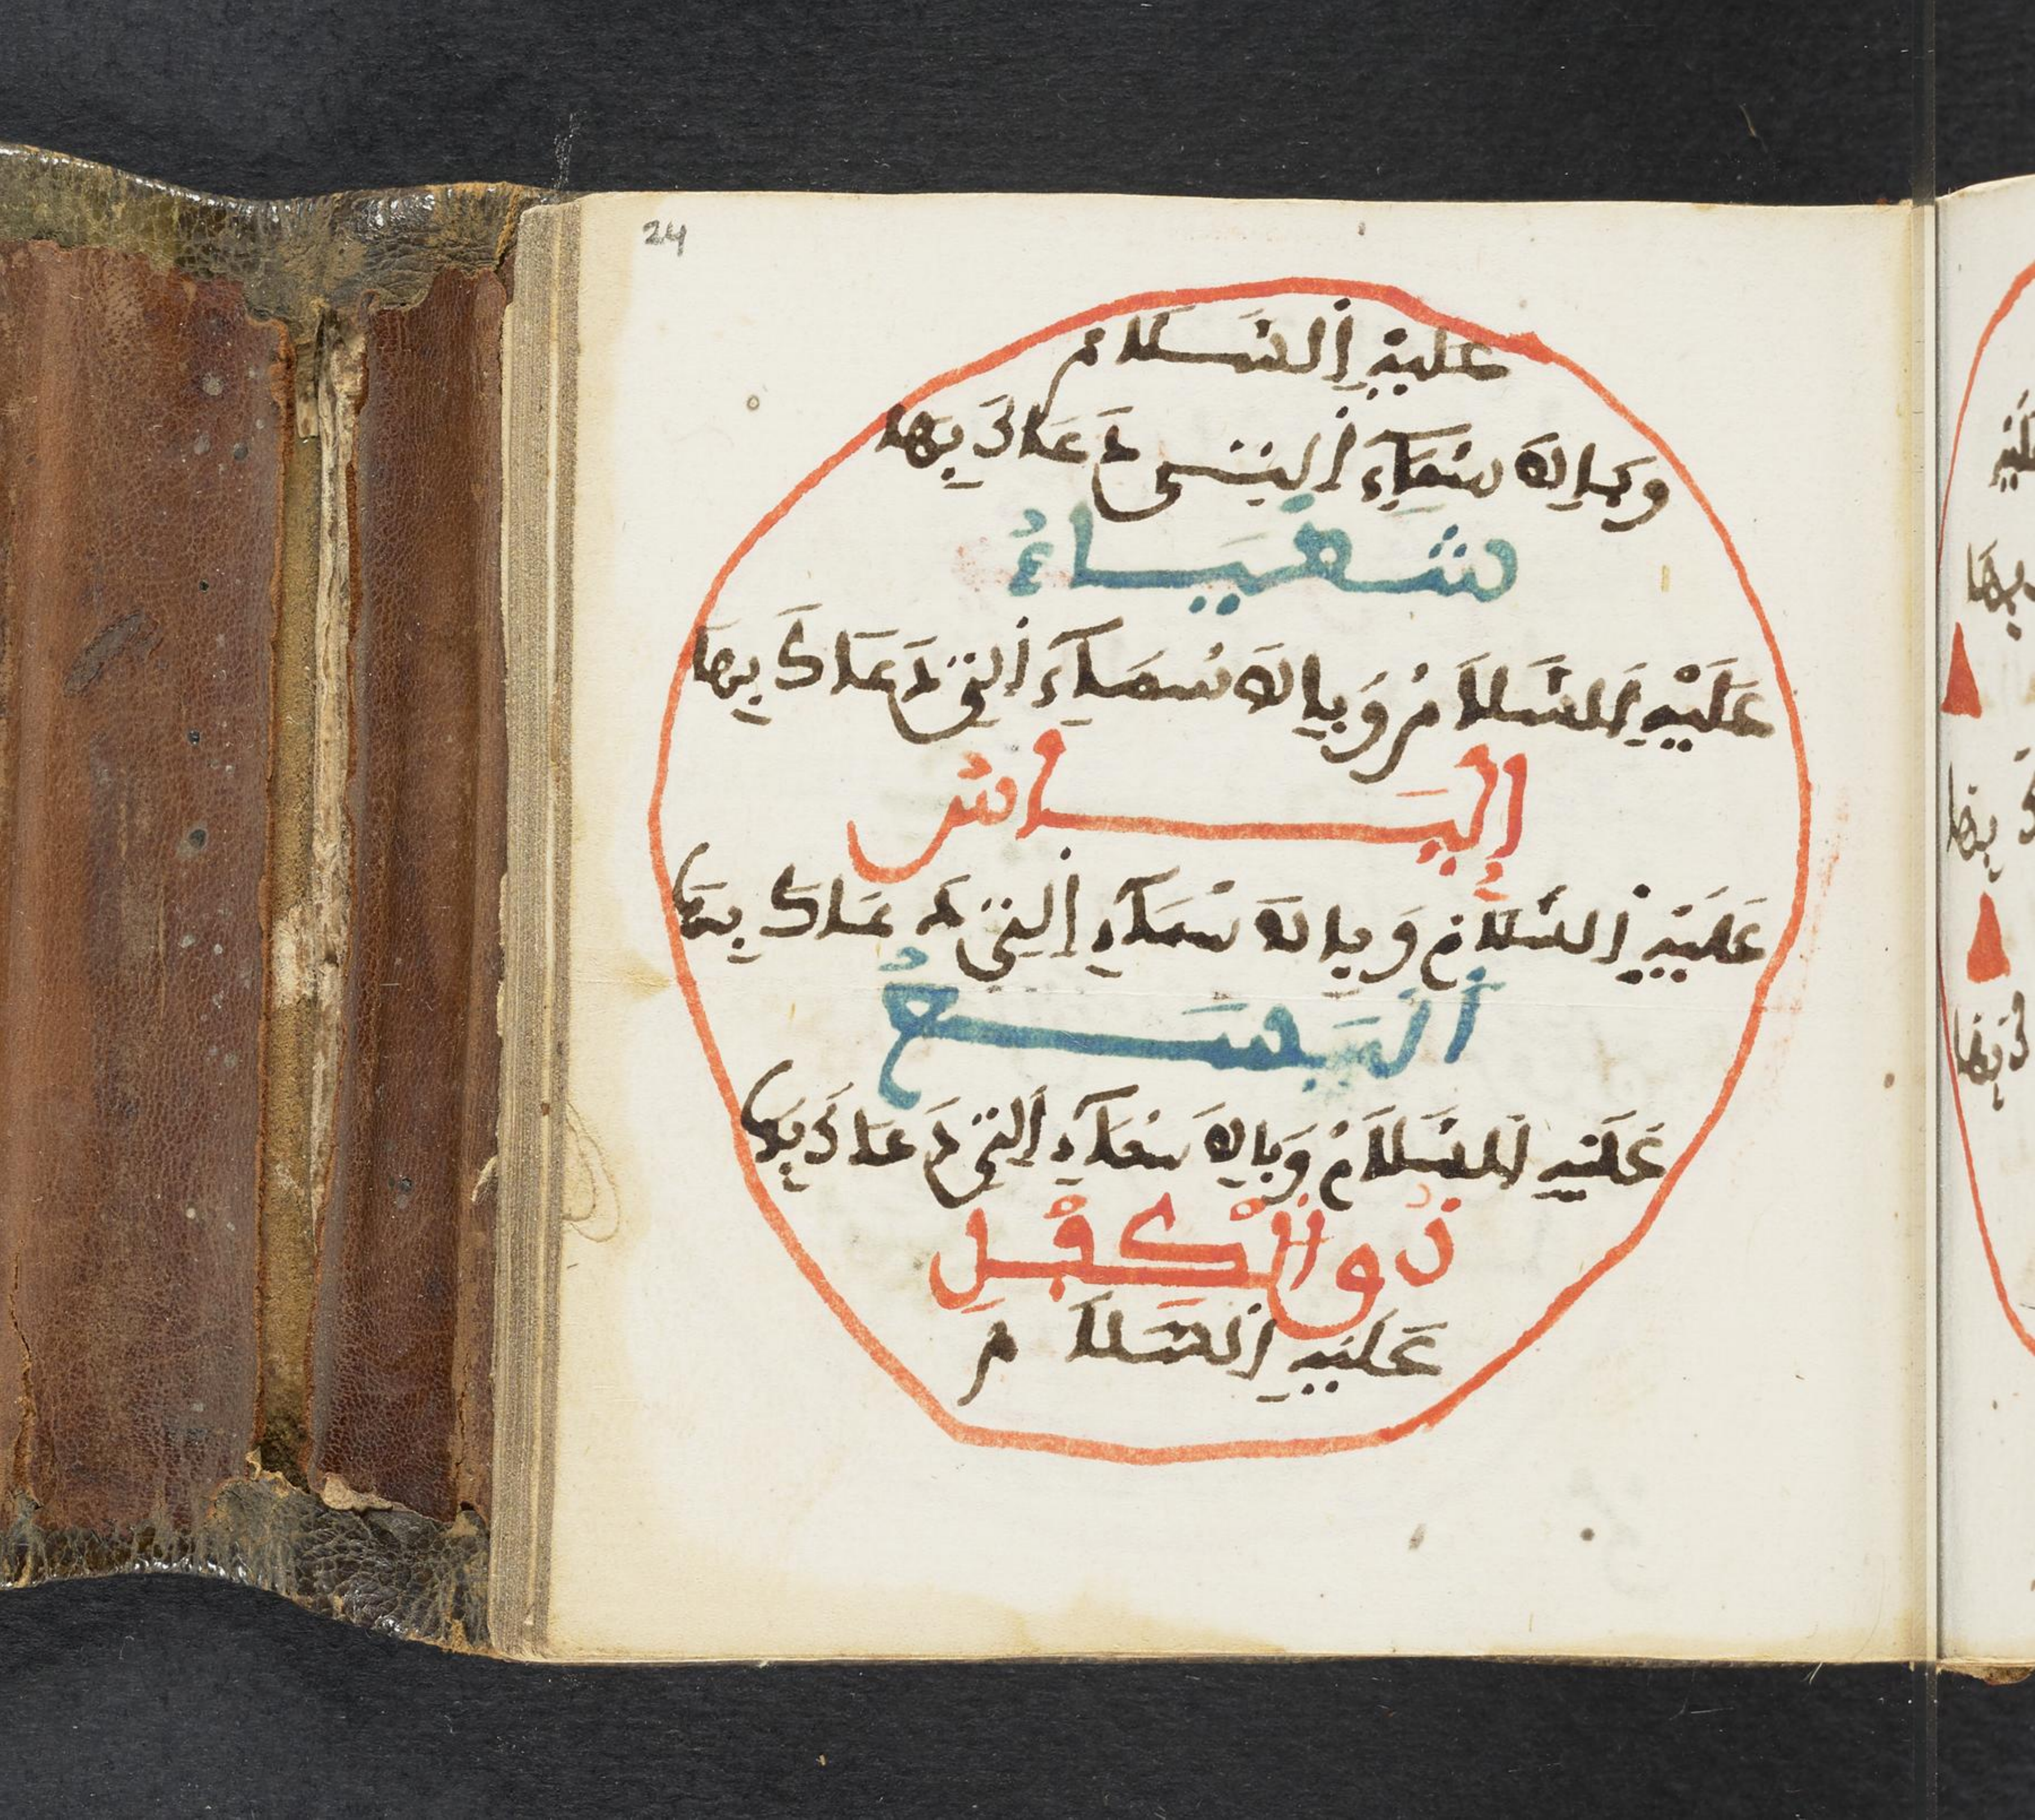 24
عَليْهِ السَّلام
وَبِالاسْمَاءِ التِي دَعَاكَ بِهَا
شَعْيَاءُ
عَلَيْهِ السَّلَامُ وَبِالاسْمَاءِ التِي دَعَاكَ بِهَا
إِلْيَاسُ
عَلَيْهِ السَّلَامُ وَبِالاسْمَاءِ التِي دَعَاكَ بِهَا
الْيَسَعُ
عَلَيْهِ السَّلَامُ وَبِالاسْمَاءِ التِي دَعَاكَ بِهَا
ذُو الْكِفْلِ
عَلَيْهِ السَّلَامُ